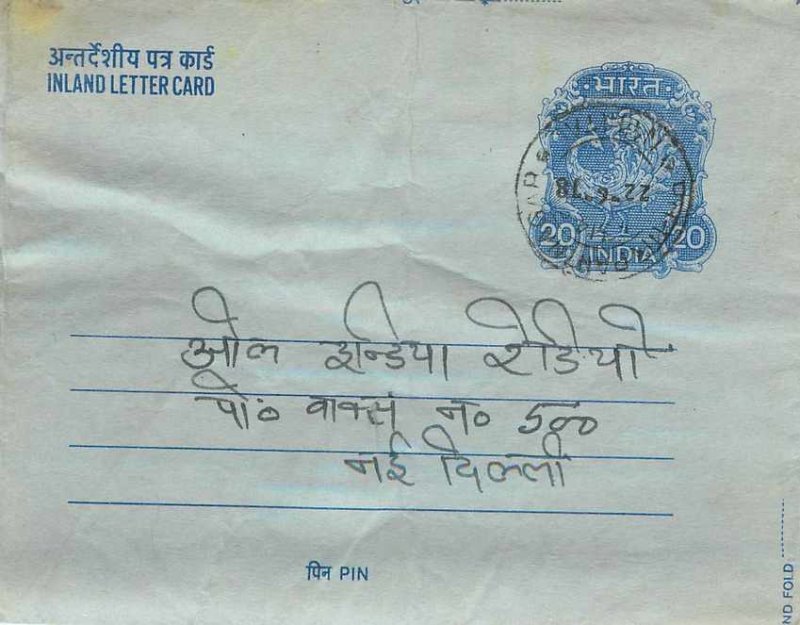 अन्तर्देशीय पत्र कार्ड
INLAND LETTER CARD
भारत
20 20
INDIA
ओल इन्डिया रेडियो
पो० वाक्स न० 500
नई दिल्ली
पिन PIN
ND FOLD